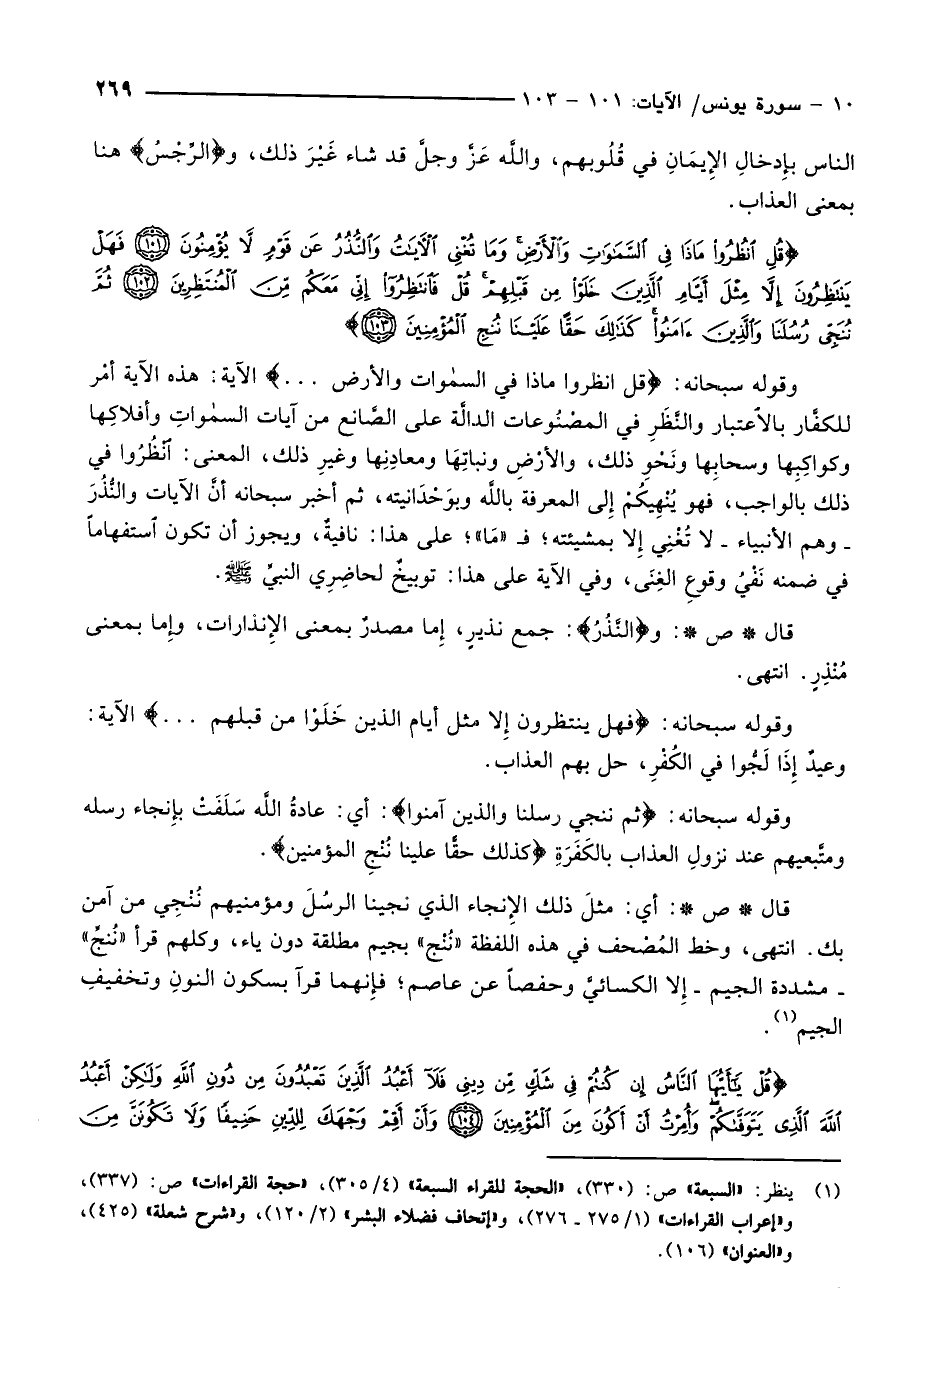 ١٠ - سورة يونس/ الآيات: ١٠١ - ١٠٣ ٢٦٩
الناس بإِدخالِ الإِيمَانِ في قُلُوبهم، واللَّه عَزَّ وجلَّ قد شاء غَيْرَ ذلك، و﴿الرِّجْسُ﴾ هنا
بمعنى العذاب.
﴿قُلِ ٱنظُرُوا۟ مَاذَا فِى ٱلسَّمَٰوَٰتِ وَٱلْأَرْضِ ۚ وَمَا تُغْنِى ٱلْءَايَٰتُ وَٱلنُّذُرُ عَن قَوْمٍ لَّا يُؤْمِنُونَ ١٠١ فَهَلْ
يَنتَظِرُونَ إِلَّا مِثْلَ أَيَّامِ ٱلَّذِينَ خَلَوْا۟ مِن قَبْلِهِمْ ۚ قُلْ فَٱنتَظِرُوٓا۟ إِنِّى مَعَكُم مِّنَ ٱلْمُنتَظِرِينَ ١٠٢ ثُمَّ
نُنَجِّى رُسُلَنَا وَٱلَّذِينَ ءَامَنُوا۟ ۚ كَذَٰلِكَ حَقًّا عَلَيْنَا نُنجِ ٱلْمُؤْمِنِينَ ١٠٣﴾
وقوله سبحانه: ﴿قل انظروا ماذا في السمٰوات والأرض ...﴾ الآية: هذه الآية أمْر
للكفَّار بالاٌعتبار والنَّظَرِ في المصْنُوعات الدالَّة على الصَّانع من آيات السمٰواتِ وأفلاكِها
وكواكِبِها وسحابِها ونَحْوِ ذلك، والأرْضِ ونباتِهَا ومعادِنِها وغيرِ ذلك، المعنى: ٱنْظُرُوا في
ذلك بالواجب، فهو يُنْهِيكُمْ إِلى المعرفة باللَّه وبوَحْدَانيته، ثم أخبر سبحانه أنَّ الآيات والنُّذُرَ
ـ وهم الأنبياء ـ لا تُغْنِي إِلا بمشيئته؛ فـ «مَا»؛ على هذا: نافيةٌ، ويجوز أن تكون ٱستفهاماً
في ضمنه نَفْيُ وقوعِ الغِنَى، وفي الآية على هذا: توبيخٌ لحاضِرِي النبيِّ ﷺ.
قال * ص *: و﴿النَّذُرُ﴾: جمع نذيرٍ، إِما مصدرٌ بمعنى الإِنذارات، وإِما بمعنى
مُنْذِرٍ. انتهى.
وقوله سبحانه: ﴿فهل ينتظرون إِلا مثل أيام الذين خَلَوْا من قبلهم ...﴾ الآية:
وعيدٌ إِذَا لَجُّوا في الكُفْرِ، حل بهم العذاب.
وقوله سبحانه: ﴿ثم ننجي رسلنا والذين آمنوا﴾: أي: عادةُ اللَّه سَلَفَتْ بإِنجاء رسله
ومتَّبعيهم عند نزولِ العذاب بالكَفَرَةِ ﴿كذلك حقًّا علينا نُنْجِ المؤمنين﴾.
قال * ص *: أي: مثلَ ذلك الإِنجاء الذي نجينا الرسُلَ ومؤمنيهم نُنْجِي من آمن
بك. انتهى، وخط المُصْحف في هذه اللفظة «نُنْج» بجيم مطلقة دون ياء، وكلهم قرأ «نُنجِّ»
ـ مشددة الجيم ـ إلا الكسائيَّ وحفصاً عن عاصم؛ فإِنهما قرآ بسكون النونِ وتخفيفِ
الجيم(١).
﴿قُلْ يَٰٓأَيُّهَا ٱلنَّاسُ إِن كُنتُمْ فِى شَكٍّ مِّن دِينِى فَلَآ أَعْبُدُ ٱلَّذِينَ تَعْبُدُونَ مِن دُونِ ٱللَّهِ وَلَٰكِنْ أَعْبُدُ
ٱللَّهَ ٱلَّذِى يَتَوَفَّىٰكُمْ ۖ وَأُمِرْتُ أَنْ أَكُونَ مِنَ ٱلْمُؤْمِنِينَ ١٠٤ وَأَنْ أَقِمْ وَجْهَكَ لِلدِّينِ حَنِيفًا وَلَا تَكُونَنَّ مِنَ
(١) ينظر: «السبعة» ص: (٣٣٠)، «الحجة للقراء السبعة» (٤/ ٣٠٥)، «حجة القراءات» ص: (٣٣٧)،
و«إعراب القراءات» (١/ ٢٧٥ ـ ٢٧٦)، و«إتحاف فضلاء البشر» (٢/ ١٢٠)، و«شرح شعلة» (٤٢٥)،
و«العنوان» (١٠٦).